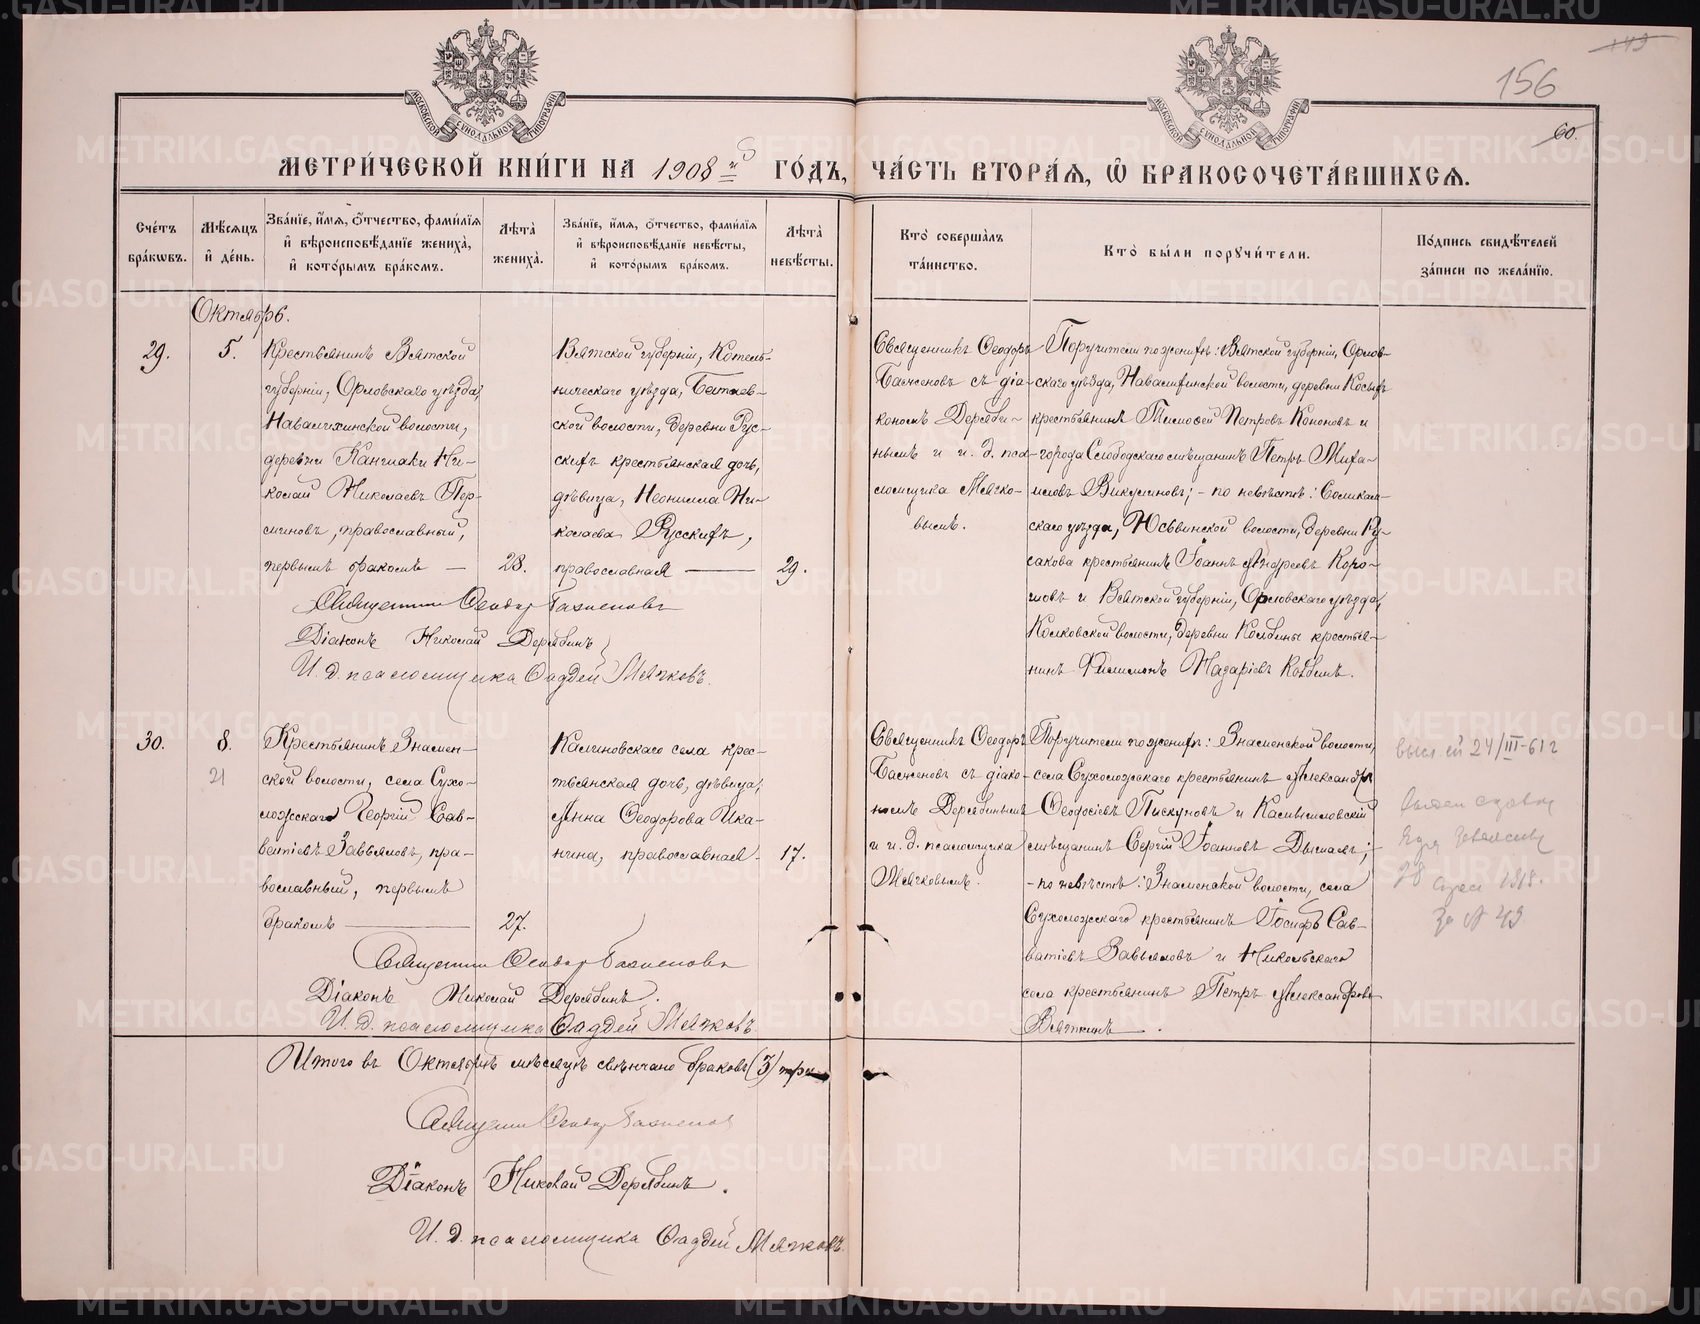 149
156
60.
МОСКОВСКОЙ СУНОДАЛЬНОЙ ТИПОГРАФІИ
МОСКОВСКОЙ СУНОДАЛЬНОЙ ТИПОГРАФІИ
МЕТРИ́ЧЕСКОЙ КНИ́ГИ НА 1908й ГО́ДЪ, ЧА́СТЬ ВТОРА́Я, Ѽ БРАКОСОЧЕТА́ВШИХСЯ.
Сче́тъ бра́кѡвъ.
Мѣ́сяцъ и҆ де́нь.
Зва́нїе, и҆́мя, ѻ҆́тчество, фами́лїя и҆ вѣроисповѣ́данїе жениха̀, и҆ кото́рымъ бра́комъ.
Лѣ́та̀ жениха̀.
Зва́нїе, и҆́мя, ѻ҆́тчество, фами́лїя и҆ вѣроисповѣ́данїе невѣ́сты, и҆ кото́рымъ бра́комъ.
Лѣ́та̀ невѣ́сты.
Кто̀ соверша́лъ та́инство.
Кто̀ бы́ли порꙋчи́тели.
По́дпись свидѣ́телей за́писи по жела́нїю.
Октябрь.
29.
5.
Крестьянинъ Вятской
губерніи, Орловскаго уѣзда,
Навалихинской волости,
деревни Ни-
колай Николаевъ Пер-
миновъ, православный,
первымъ бракомъ —
28.
Вятской губерніи, Котель-
ническаго уѣзда,
ской волости, деревни Рус-
скихъ крестьянская дочь,
дѣвица, Неонилла Ни-
колаева Русскихъ,
православная —
29.
Священникъ Ѳеодоръ
Баженовъ съ діа-
кономъ Деряби-
нымъ и и. д. пса-
ломщика Мячко-
вымъ.
Поручители по женихѣ: Вятской губерніи, Орлов-
скаго уѣзда, Навалихинской волости, деревни
крестьянинъ Тимоѳей Петровъ Кононовъ и
города Слободскаго мѣщанинъ Петръ Миха-
иловъ Викулиновъ; - по невѣстѣ: Соликам-
скаго уѣзда, Юсьвинской волости, деревни Ру-
сакова крестьянинъ Іоаннъ Андреевъ
и Вятской губерніи, Орловскаго уѣзда,
Колковской волости, деревни Колбины крестья-
нинъ Филимонъ Назаріевъ
Священникъ Ѳеодоръ Баженовъ
Діаконъ Николай Дерябинъ
И. д. псаломщика Ѳаддей Мячковъ.
30.
8.
21
Крестьянинъ Знамен-
ской волости, села Сухо-
ложскаго Георгій Сав-
ватіевъ Завьяловъ, пра-
вославный, первымъ
бракомъ —
27.
Калиновскаго села крес-
тьянская дочь, дѣвица,
Анна Ѳеодорова Ика-
нина, православная.
17.
Священникъ Ѳеодоръ
Баженовъ съ діако-
номъ Дерябинымъ
и и. д. псаломщика
Мячковымъ.
Поручители по женихѣ: Знаменской волости,
села Сухоложскаго крестьянинъ Александръ
Ѳеодосіевъ Пискуновъ и Камышловскій
мѣщанинъ Сергій Іоанновъ
- по невѣстѣ: Знаменской волости, села
Сухоложскаго крестьянинъ Іосифъ Сав-
ватіевъ Завьяловъ и Никольскаго
села крестьянинъ Петръ Александровъ
Вяткинъ.
24/III-61 г
за № 49
Священникъ Ѳеодоръ Баженовъ
Діаконъ Николай Дерябинъ.
И. д. псаломщика Ѳаддей Мячковъ
Итого въ Октябрѣ мѣсяцѣ свѣнчано браковъ (3) три
Священникъ Ѳеодоръ Баженовъ
Діаконъ Николай Дерябинъ.
И. д. псаломщика Ѳаддей Мячковъ.
METRIKI.GASO-URAL.RU